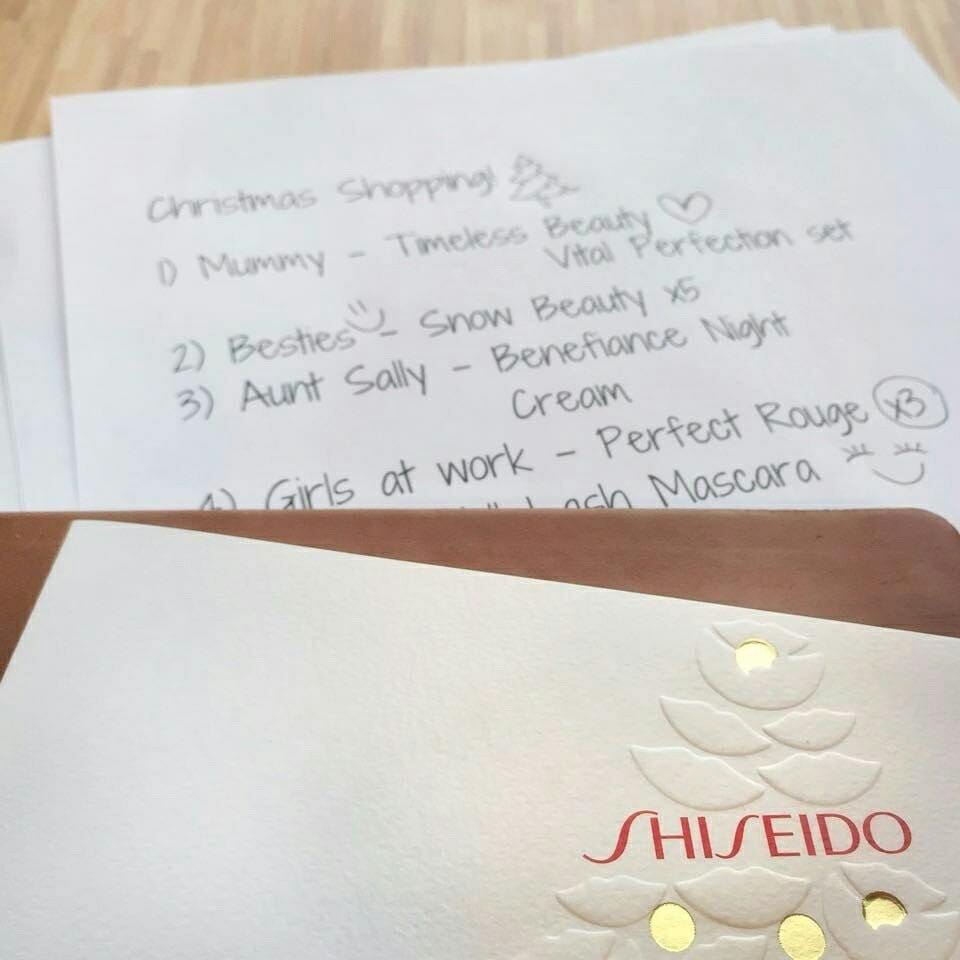 Christmas Shopping!
1) Mummy - Timeless Beauty
Vital Perfection set
2) Besties - Snow Beauty x5
3) Aunt Sally - Benefiance Night
Cream
4) Girls at work - Perfect Rouge x3
Lash Mascara
SHISEIDO